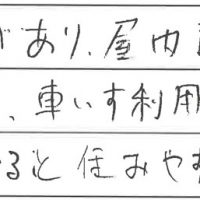 があり、屋内
、車いす利用
ると住みやす